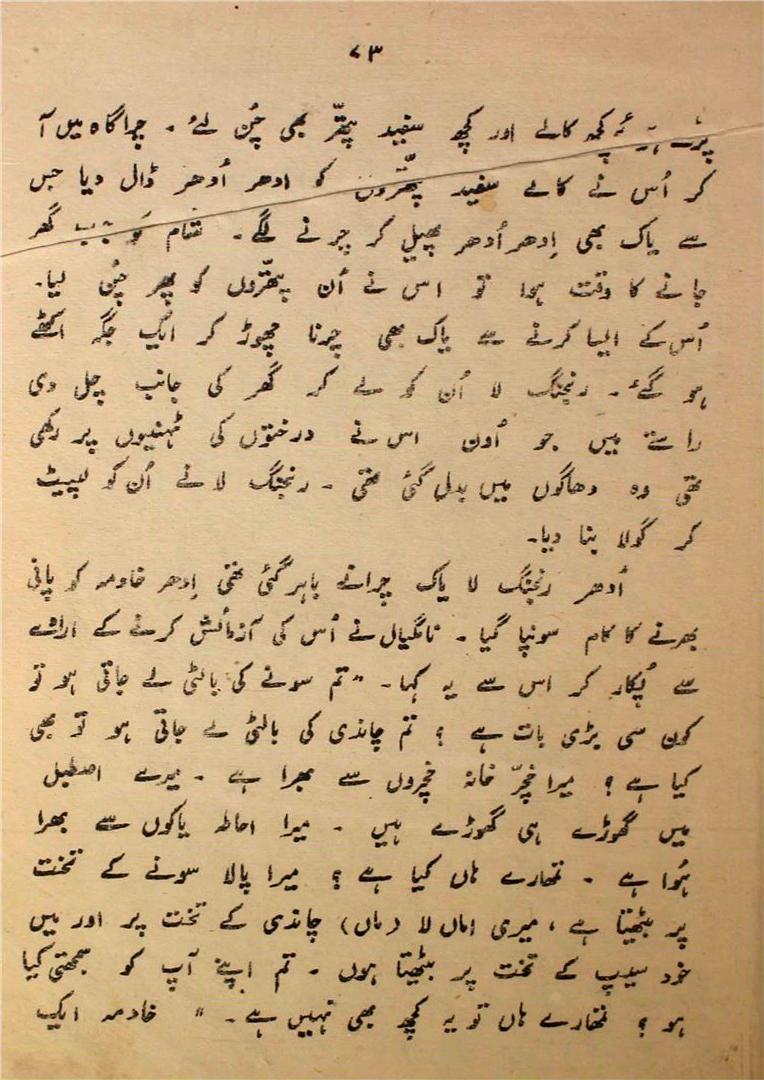 ۷۳
کچھ کالے اور کچھ سفید پتھّر بھی چُن لئے ۔ چراگاہ میں آ
کر اُس نے کالے سفید پتھّروں کو ادھر اُدھر ڈال دیا جس
سے یاک بھی اِدھر اُدھر پھیل کر چرنے لگے ۔ شام کو جب گھر
جانے کا وقت ہوا تو اس نے اُن پتھّروں کو پھر چُن لیا۔
اُس کے ایسا کرنے سے یاک بھی چرنا چھوڑ کر ایک جگہ اکٹھے
ہو گئے ۔ رنچنگ لا اُن کو لے کر گھر کی جانب چل دی
راستے میں جو اُون اس نے درختوں کی ٹہنیوں پر رکھی
تھی وہ دھاگوں میں بدل گئی تھی ۔ رنچنگ لا نے اُن کو لپیٹ
کر گولا بنا دیا۔
اُدھر رنچنگ لا یاک چرانے باہر گئی تھی اِدھر خادمہ کو پانی
بھرنے کا کام سونپا گیا ۔ نانگیال نے اُس کی آزمائش کرنے کے ارادے
سے پُکار کر اس سے یہ کہا ۔ "تم سونے کی بالٹی لے جاتی ہو تو
کون سی بڑی بات ہے ؟ تم چاندی کی بالٹی لے جاتی ہو تو بھی
کیا ہے ؟ میرا خچّر خانہ خچروں سے بھرا ہے ۔ میرے اصطبل
میں گھوڑے ہی گھوڑے ہیں ۔ میرا احاطہ یاکوں سے بھرا
ہُوا ہے ۔ تمہارے ہاں کیا ہے ؟ میرا پالا سونے کے تخت
پر بیٹھتا ہے ، میری اماں لا (ماں) چاندی کے تخت پر اور میں
خود سیپ کے تخت پر بیٹھتا ہوں ۔ تم اپنے آپ کو سمجھتی کیا
ہو ؟ تمھارے ہاں تو یہ کچھ بھی نہیں ہے ۔ " خادمہ ایک